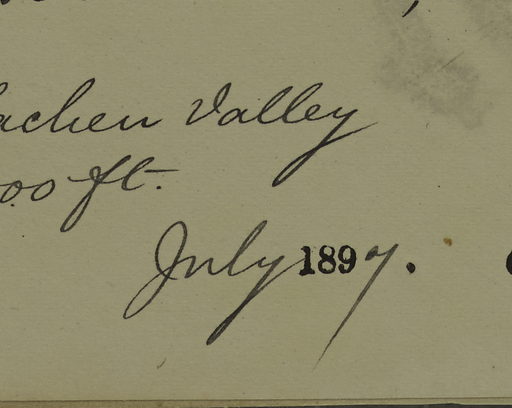 achen Valley
00 ft.
July 1897.